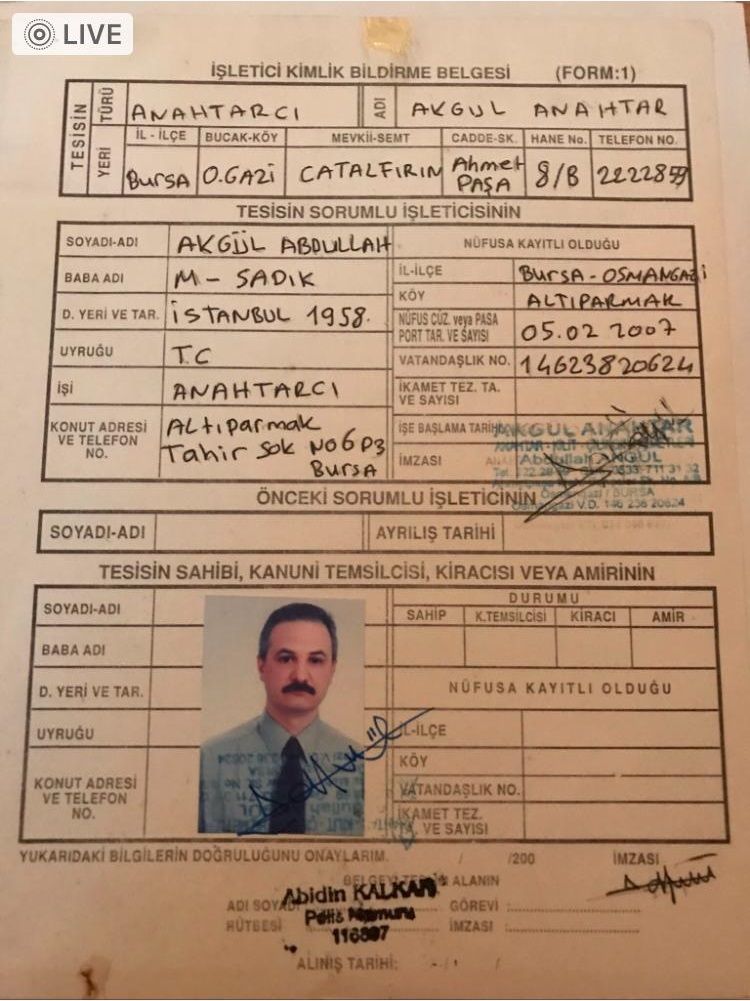 LIVE
İŞLETİCİ KİMLİK BİLDİRME BELGESİ (FORM:1)
TESİSİN
TÜRÜ ANAHTARCI ADI AKGUL ANAHTAR
YERİ İL - İLÇE BUCAK-KÖY MEVKİİ-SEMT CADDE-SK. HANE No. TELEFON NO.
BURSA O.GAZİ CATALFIRIN Ahmet PAŞA 8/B
TESİSİN SORUMLU İŞLETİCİSİNİN
SOYADI-ADI AKGÜL ABDULLAH NÜFUSA KAYITLI OLDUĞU
BABA ADI M - SADIK İL-İLÇE BURSA-OSMANGAZi
KÖY ALTIPARMAK
D. YERİ VE TAR. İSTANBUL 1958. NÜFUS CÜZ. veya PASA PORT TAR. VE SAYISI 05.02 2007
UYRUĞU T.C VATANDAŞLIK NO. 14623820624
İŞİ ANAHTARCI İKAMET TEZ. TA. VE SAYISI
KONUT ADRESİ VE TELEFON NO. ALTıparmak Tahir Sok NO6 D3 BURSA İŞE BAŞLAMA
AKGÜL ANAHTAR
İMZASI
ÖNCEKİ SORUMLU İŞLETİCİNİN
SOYADI-ADI AYRILIŞ TARİHİ
TESİSİN SAHİBİ, KANUNİ TEMSİLCİSİ, KİRACISI VEYA AMİRİNİN
SOYADI-ADI DURUMU
SAHİP K.TEMSİLCİSİ KİRACI AMİR
BABA ADI
D. YERİ VE TAR. NÜFUSA KAYITLI OLDUĞU
UYRUĞU İL-İLÇE
KÖY
KONUT ADRESİ VE TELEFON NO. VATANDAŞLIK NO.
İKAMET TEZ. TA. VE SAYISI
YUKARIDAKİ BİLGİLERİN DOĞRULUĞUNU ONAYLARIM. / /200 İMZASI
BELGEYİ TESLİM ALANIN
Abidin KALKAN
ADI SOYADI GÖREVİ :
Polis Memuru
RÜTBESİ İMZASI :
ALINIŞ TARİHİ: / /